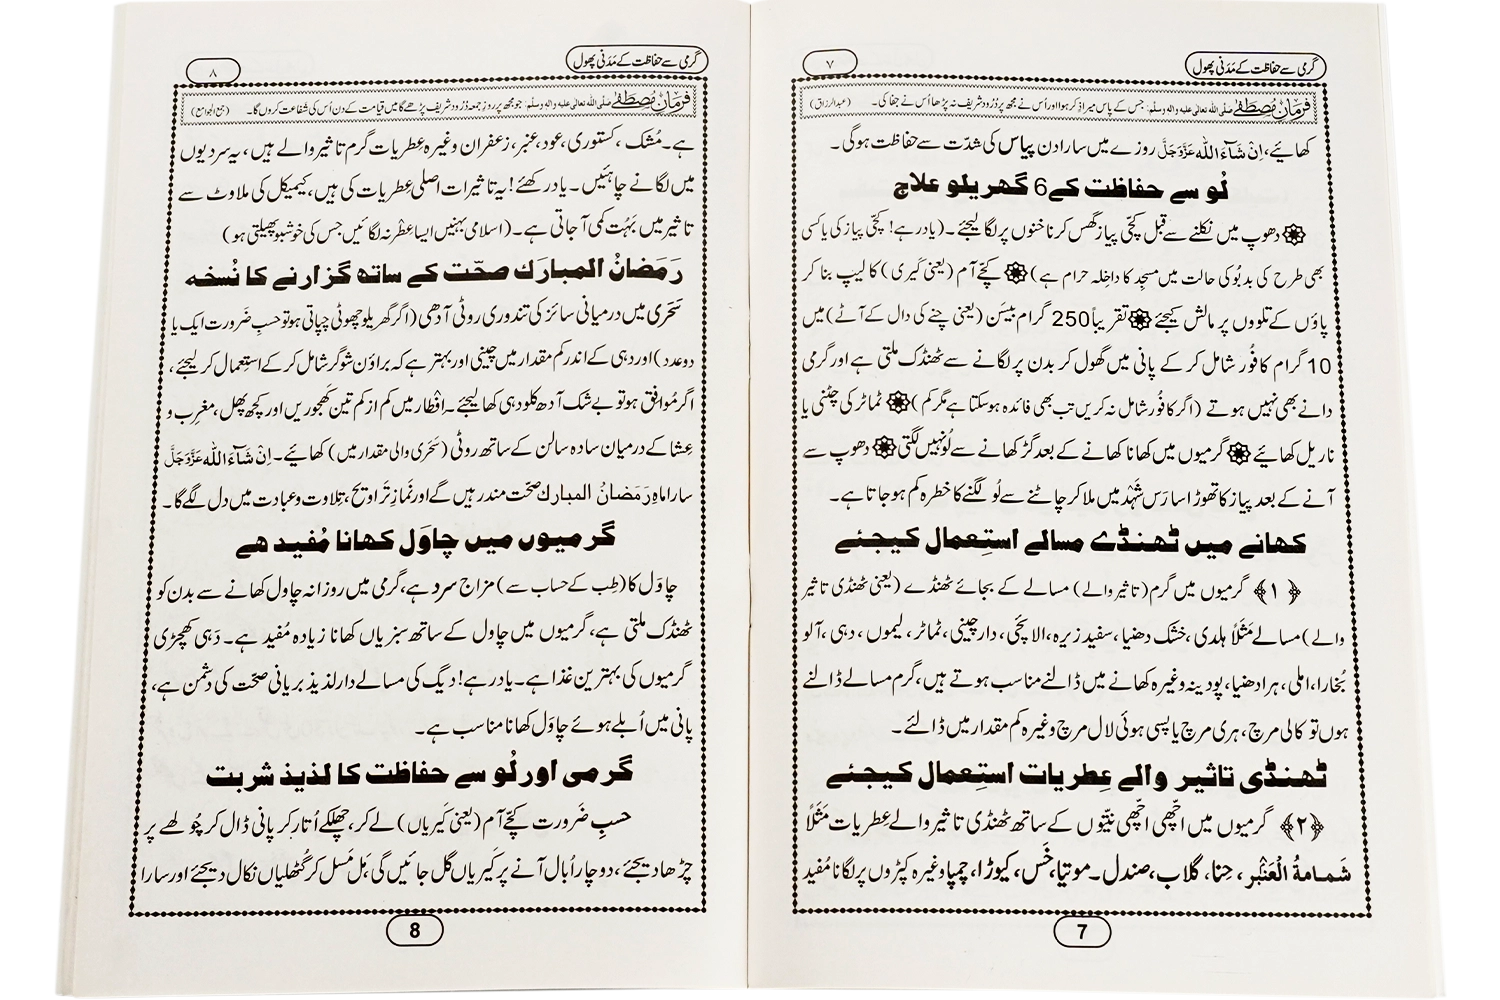 گرمی سے حفاظت کے مَدَنی پھول
۷
فرمانِ مصطفےٰ صلی اللہ تعالیٰ علیہ والہ وسلم: جس کے پاس میرا ذکر ہوا اور اُس نے مجھ پر دُرُود شریف نہ پڑھا اُس نے جفا کی۔ (عبد الرزاق)
کھائیے، اِنْ شَآءَاللہ عَزَّوَجَلَّ روزے میں سارا دن پیاس کی شدّت سے حفاظت ہوگی۔
لُو سے حفاظت کے 6 گھریلو علاج
دھوپ میں نکلنے سے قبل کچّی پیاز گھس کر ناخنوں پر لگا لیجئے۔ (یاد رہے! کچّی پیاز کی یا کسی
بھی طرح کی بدبُو کی حالت میں مسجِد کا داخِلہ حرام ہے) کچّے آم (یعنی کَیری) کا لیپ بنا کر
پاؤں کے تلووں پر مالش کیجئے تقریباً 250 گرام بیسَن (یعنی چنے کی دال کے آٹے) میں
10 گرام کافُور شامل کر کے پانی میں گھول کر بدن پر لگانے سے ٹھنڈک ملتی ہے اور گرمی
دانے بھی نہیں ہوتے (اگر کافُور شامل نہ کریں تب بھی فائدہ ہوسکتا ہے مگر کم) ٹماٹر کی چٹنی یا
ناریل کھائیے گرمیوں میں کھانا کھانے کے بعد گُڑ کھانے سے لُو نہیں لگتی دھوپ سے
آنے کے بعد پیاز کا تھوڑا سا رَس شَہْد میں ملا کر چاٹنے سے لُو لگنے کا خطرہ کم ہو جاتا ہے۔
کھانے میں ٹھنڈے مسالے استِعمال کیجئے
﴿۱﴾ گرمیوں میں گرم (تاثیر والے) مسالے کے بجائے ٹھنڈے (یعنی ٹھنڈی تاثیر
والے) مسالے مَثَلاً ہلدی، خشک دھنیا، سفید زیرہ، الائچی، دار چینی، ٹماٹر، لیموں، دہی، آلو
بُخارا، املی، ہرا دھنیا، پودینہ وغیرہ کھانے میں ڈالنے مناسب ہوتے ہیں، گرم مسالے ڈالنے
ہوں تو کالی مرچ، ہری مرچ یا پسی ہوئی لال مرچ وغیرہ کم مقدار میں ڈالئے۔
ٹھنڈی تاثیر والے عِطریات استِعمال کیجئے
﴿۲﴾ گرمیوں میں اچّھی اچّھی نیّتوں کے ساتھ ٹھنڈی تاثیر والے عطریات مَثَلاً
شَمامۃُ الْعَنْبَر، حِنا، گلاب، صندل۔ موتیا، خَس، کیوڑا، چمپا وغیرہ کپڑوں پر لگانا مُفید
7
گرمی سے حفاظت کے مَدَنی پھول
۸
فرمانِ مصطفےٰ صلی اللہ تعالیٰ علیہ والہ وسلم: جو مجھ پر روزِ جمعہ دُرُود شریف پڑھے گا میں قیامت کے دن اُس کی شفاعت کروں گا۔ (جمع الجوامع)
ہے۔ مُشک، کستوری، عود، عنبر، زعفران وغیرہ عطریات گرم تاثیر والے ہیں، یہ سردیوں
میں لگانے چاہئیں۔ یاد رکھئے! یہ تاثیرات اصلی عطریات کی ہیں، کیمیکل کی ملاوٹ سے
تاثیر میں بَہُت کمی آجاتی ہے۔ (اسلامی بہنیں ایسا عطر نہ لگائیں جس کی خوشبو پھیلتی ہو)
رَمَضانُ المبارَک صحّت کے ساتھ گزارنے کا نُسخہ
سَحَری میں درمیانی سائز کی تندوری روٹی آدھی (اگر گھریلو چھوٹی چپاتی ہو تو حسبِ ضَرورت ایک یا
دو عدد) اور دہی کے اندر کم مقدار میں چینی اور بہتر ہے کہ براؤن شوگر شامل کر کے استِعمال کر لیجئے،
اگر مُوافِق ہو تو بے شک آدھ کلو دہی کھا لیجئے۔ اِفطار میں کم از کم تین کَھجوریں اور کچھ پھل، مغرِب و
عِشا کے درمیان سادہ سالن کے ساتھ روٹی (سَحَری والی مقدار میں) کھائیے۔ اِنْ شَآءَاللہ عَزَّوَجَلَّ
سارا ماہِ رَمَضانُ المبارَک صحّت مند رہیں گے اور نَمازِ تراویح، تِلاوت و عبادت میں دل لگے گا۔
گرمیوں میں چاوَل کھانا مُفید ہے
چاوَل کا (طِب کے حساب سے) مزاج سرد ہے، گرمی میں روزانہ چاول کھانے سے بدن کو
ٹھنڈک ملتی ہے، گرمیوں میں چاول کے ساتھ سبزیاں کھانا زیادہ مُفید ہے۔ دَہی کھچڑی
گرمیوں کی بہترین غذا ہے۔ یاد رہے! دیگ کی مسالے دار لذیذ بریانی صحّت کی دشمن ہے،
پانی میں اُبلے ہوئے چاوَل کھانا مناسب ہے۔
گرمی اور لُو سے حفاظت کا لذیذ شربت
حسبِ ضَرورت کچّے آم (یعنی کَیریاں) لے کر، چھلکے اُتار کر پانی ڈال کر چُولھے پر
چڑھا دیجئے، دو چار اُبال آنے پر کَیریاں گل جائیں گی، مَل مَسل کر گُٹھلیاں نکال دیجئے اور سارا
8